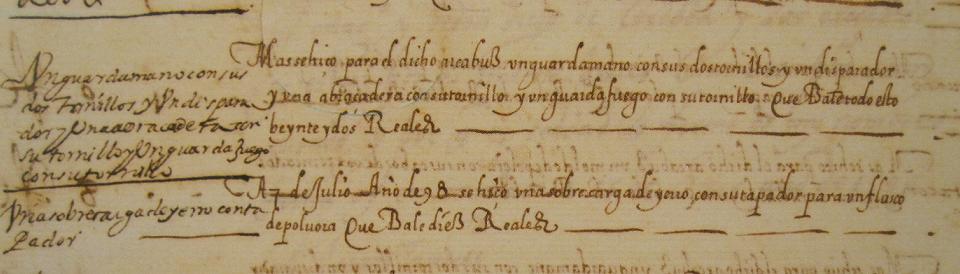 Un guardamano con sus
dos tornillos y un dispara
dor y una abracadera con
su tornillo y un guarda fuego
con su tornillo
Mas se hiço para el dicho arcabuß un guardamano con sus dos tornillos y un disparador
y una abraçadera con su tornillo y un guarda fuego con su tornillo Que Bale todo esto
beynte y dos Reales
Una sobrecarga de yerro con ta
pador
A 7 de Julio Año de 98 se hiço una sobre carga de yerro, con su tapador para un flasco
de polvora Que Bale dieß Reales